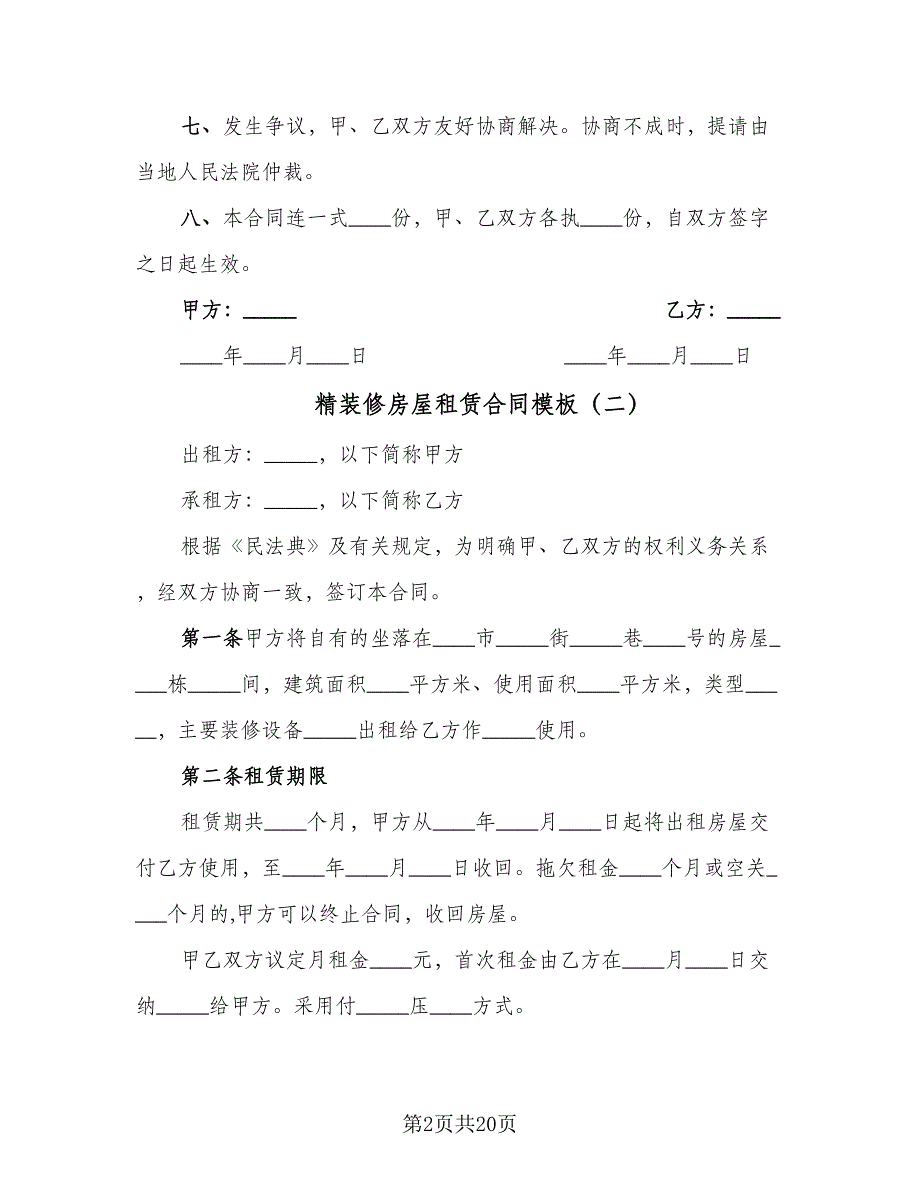 七、发生争议，甲、乙双方友好协商解决。协商不成时，提请由
当地人民法院仲裁。
八、本合同连一式____份，甲、乙双方各执____份，自双方签字
之日起生效。
甲方：_____ 乙方：_____
____年____月____日 ____年____月____日
精装修房屋租赁合同模板（二）
出租方：_____，以下简称甲方
承租方：_____，以下简称乙方
根据《民法典》及有关规定，为明确甲、乙双方的权利义务关系
，经双方协商一致，签订本合同。
第一条甲方将自有的坐落在____市_____街_____巷____号的房屋_
___栋_____间，建筑面积____平方米、使用面积____平方米，类型___
__，主要装修设备_____出租给乙方作_____使用。
第二条租赁期限
租赁期共____个月，甲方从____年____月____日起将出租房屋交
付乙方使用，至____年____月____日收回。拖欠租金____个月或空关_
___个月的,甲方可以终止合同，收回房屋。
甲乙双方议定月租金____元，首次租金由乙方在____月____日交
纳_____给甲方。采用付_____压____方式。
第2页共20页